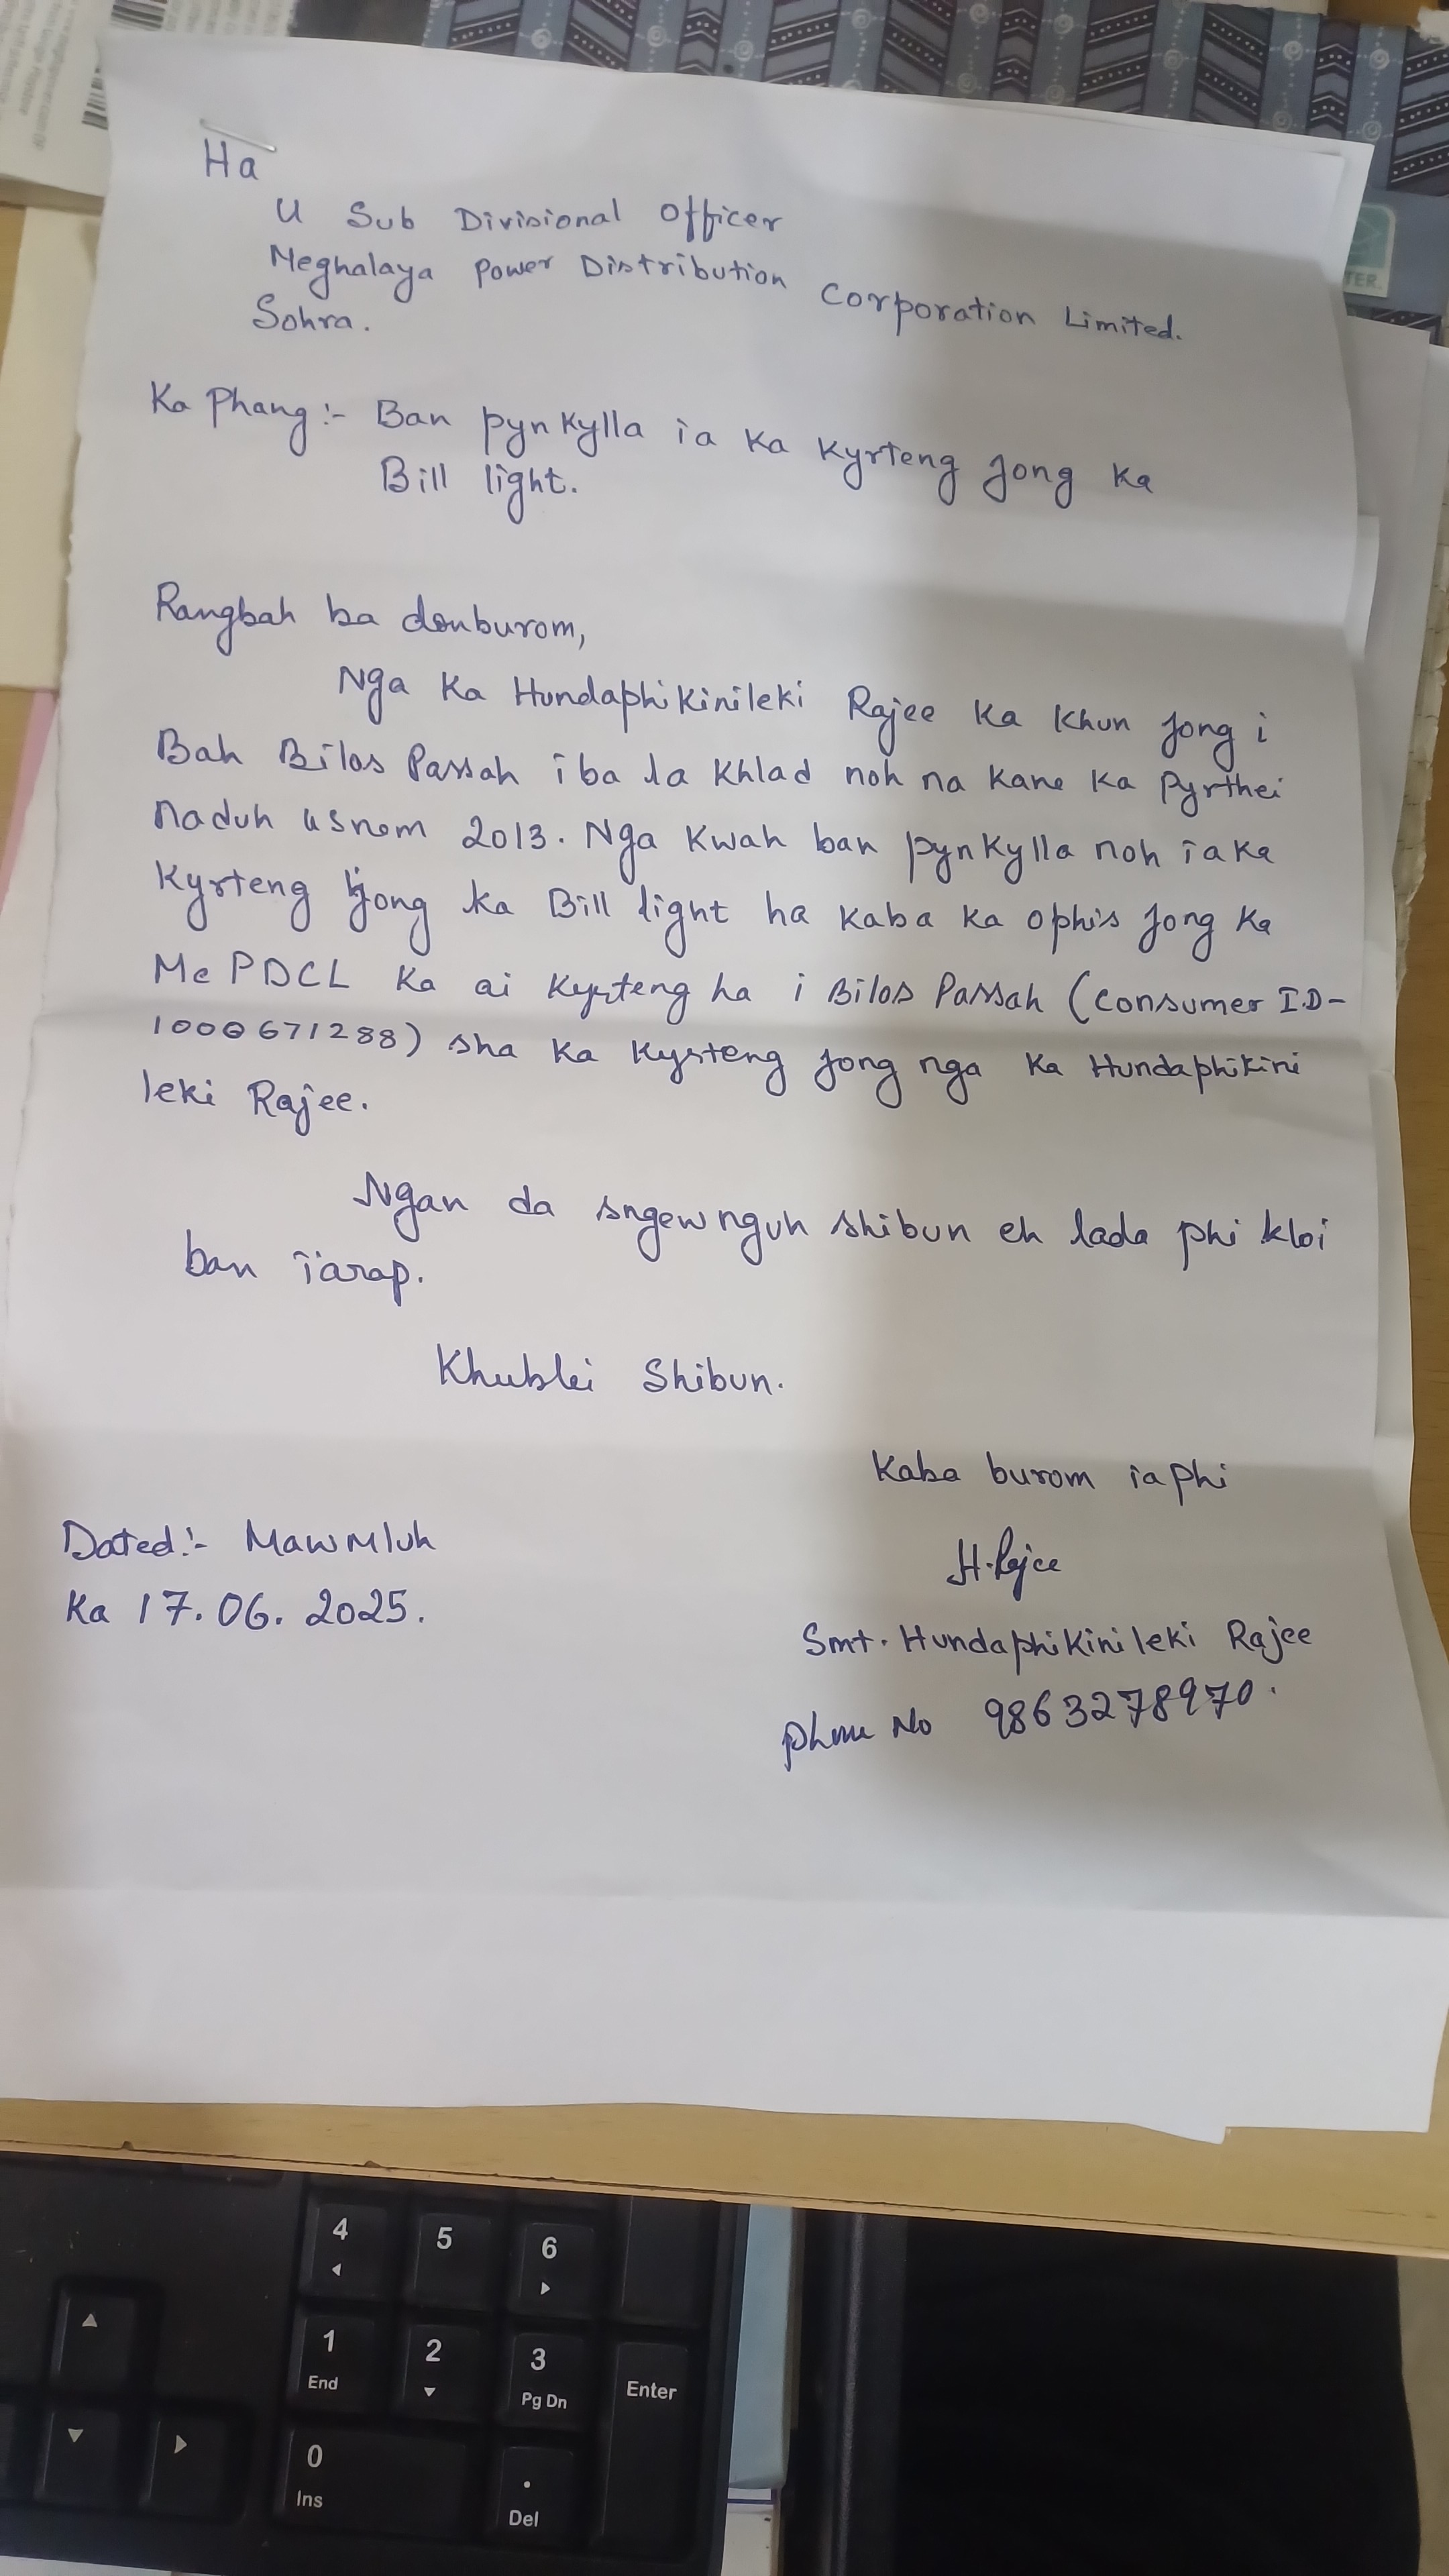 Ha
U Sub Divisional Officer
Meghalaya Power Distribution Corporation Limited.
Sohra.
Ka Phang :- Ban pynkylla ia ka kyrteng jong ka
Bill light.
Rangbah ba donburom,
Nga ka Hundaphikinileki Rajee ka khun jong i
Bah Bilos Passah iba la khlad noh na kane ka pyrthei
naduh u snem 2013. Nga kwah ban pynkylla noh ïa ka
kyrteng jong ka Bill light ha kaba ka ophis jong ka
MePDCL ka ai kyrteng ha i Bilos Passah (Consumer I.D-
1000671288) sha ka kyrteng jong nga ka Hundaphikini
leki Rajee.
Ngan da sngewnguh shibun eh lada phi kloi
ban ïarap.
Khublei Shibun.
Kaba burom ïa phi
H.Rajee
Dated :- Mawmluh
Ka 17.06.2025.
Smt. Hundaphikinileki Rajee
Phone No 9863278970.
TER.
4
5
6
1
End
2
3
Pg Dn
Enter
0
Ins
.
Del